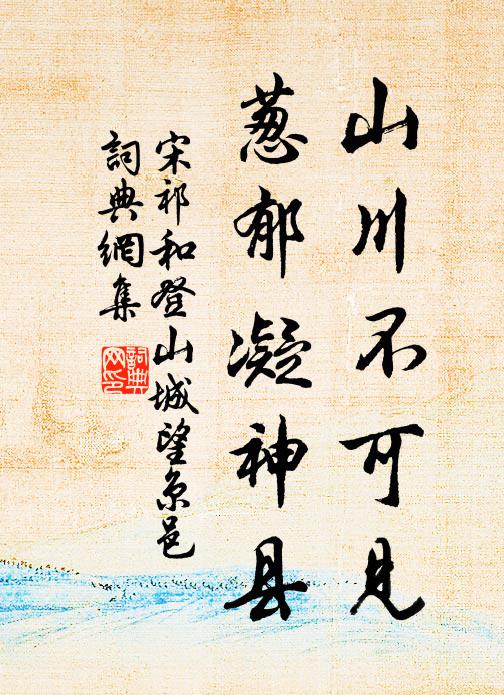 山川不可見
葱郁凝神县
宋祁和登山城望京邑
詞典網集
詞典
网印